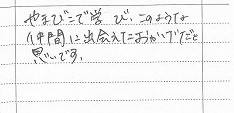 やまびこで学び、このような
仲間に出会えたおかげだと
思いです。